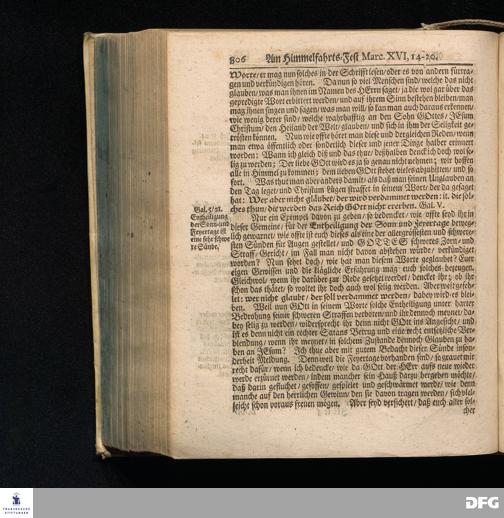 806 Am Himmelfahrts-Fest Marc. XVI, 14-20.
Worte/ er mag nun solches in der Schrifft lesen/ oder es von andern fürtra-
gen und verkündigen hören. Da nun so viel Menschen sind/ welche das nicht
glauben/ was man ihnen im Namen des HErrn saget/ ja die wol gar über das
gepredigte Wort erbittert werden/ und auf ihrem Sinn bestehen bleiben/ man
mag ihnen singen und sagen/ was man will/ so kan man auch daraus erkennen/
wie wenig derer sind/ welche wahrhafftig an den Sohn GOttes/ JEsum
Christum/ den Heiland der Welt/ glauben/ und sich in ihm der Seligkeit ge-
trösten können. Nun wie offte höret man diese und dergleichen Reden/ wenn
man etwa öffentlich oder sonderlich dieser und jener Dinge halber erinnert
worden: Wann ich gleich diß und das thu/ deßhalben denck ich doch wol se-
lig zu werden; Der liebe GOtt würd es ja so genau nicht nehmen; wir hoffen
alle in Himmel zu kommen; dem lieben GOtt stehet vieles abzubitten/ und so
fort. Was thut man aber anders damit/ als daß man seinen Unglauben an
den Tag leget/ und Christum Lügen straffet in seinem Wort/ der da gesaget
hat: Wer aber nicht gläubet/ der wird verdammet werden: it. die sol-
ches thun/ die werden das Reich GOtt nicht ererben. Gal. V.
Gal. 5/ 21.
Entheiligung
der Sonn- und
Feyertage ist
eine sehr schwe-
re Sünde,
Nur ein Exempel davon zu geben/ so bedencket/ wie offte seyd ihr in
dieser Gemeine/ für der Entheiligung der Sonn und Feyertage beweg-
lich gewarnet/ wie offte ist euch dieses als eine der allergrössesten und schwere-
sten Sünden für Augen gestellet/ und GOTTES schweres Zorn- und
Straff-Gericht/ im Fall man nicht davon abstehen würde/ verkündiget
worden? Nun sehet doch/ wie hat man diesem Worte geglaubet? Euer
eigen Gewissen und die klägliche Erfahrung mag euch solches bezeugen.
Gleichwol/ wenn ihr darüber zur Rede gesetzet werdet/ dencket ihr; ob ihr
schon das thätet/ so woltet ihr doch auch wol selig werden. Aber weit gefeh-
let: wer nicht glaubt/ der soll verdammet werden/ dabey wird es blei-
ben. Weil nun GOtt in seinem Worte solche Entheiligung unter harter
Bedrohung seiner schweren Straffen verboten/ und ihr dennoch meynet/ da-
bey selig zu werden/ widersprecht ihr denn nicht GOtt ins Angesicht/ und
ist es denn nicht ein rechter Satans Betrug und eine recht entsetzliche Ver-
blendung/ wenn ihr meynet/ in solchem Zustande dennoch Glauben zu ha-
ben an JEsum? Ich thue aber mit gutem Bedacht dieser Sünde inson-
derheit Meldung. Denn weil die Feyertage vorhanden sind/ so grauet mir
recht dafür/ wenn ich bedencke/ wie da GOtt der HErr aufs neue wieder
werde erzürnet werden/ indem mancher sein Hauß darzu hergeben möchte/
daß darin gesuchet/ gesoffen/ gespielet und geschwärmet werde/ wie denn
manche auf den herrlichen Gewinn/ den sie davon tragen werden/ sich viel-
leicht schon voraus freuen mögen. Aber seyd versichert/ daß euch aller sol-
cher
FRANCKESCHE
STIFTUNGEN
DFG